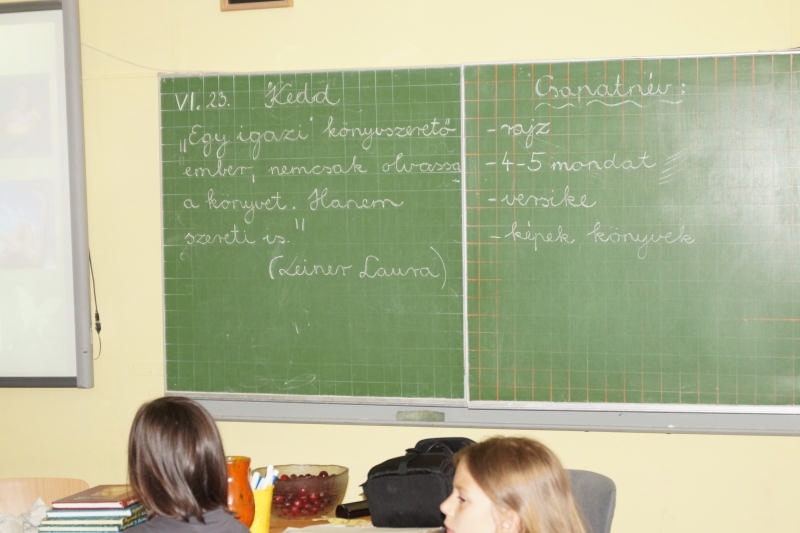 VI. 23. Kedd
„Egy igazi könyvszerető
ember, nemcsak olvassa
a könyvet. Hanem
szereti is."
(Leiner Laura)
Csapatnév:
-rajz
-4-5 mondat
-versike
-képek, könyvek